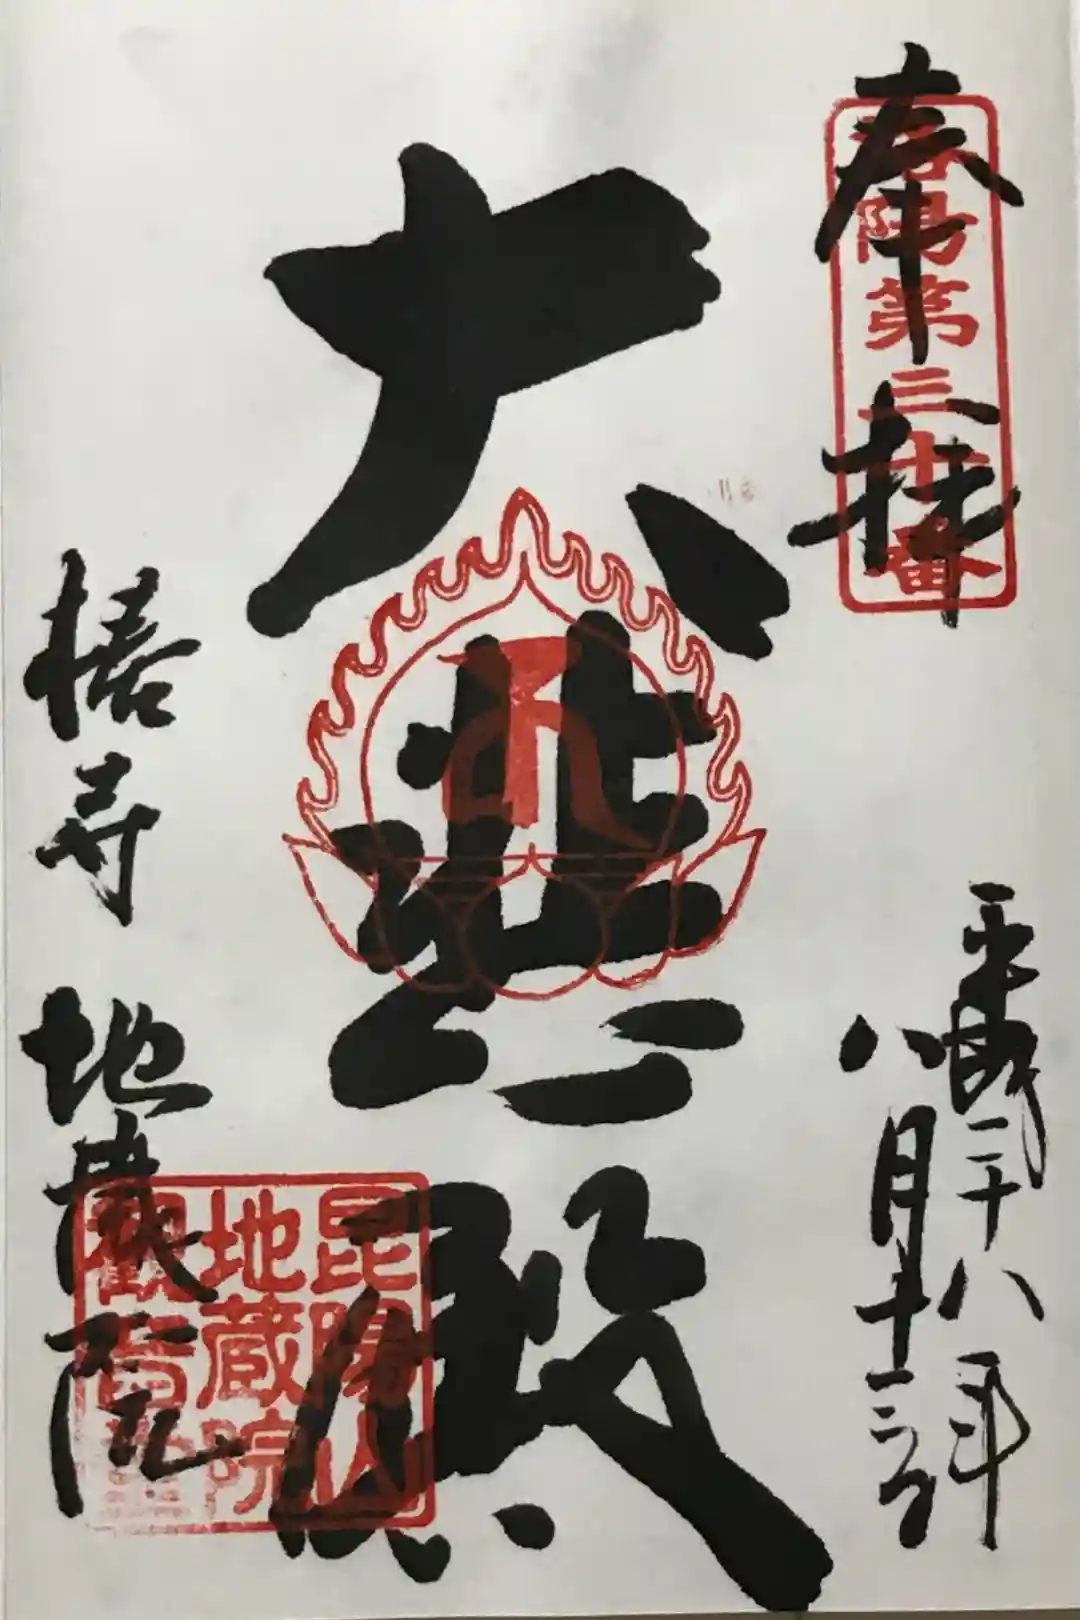 奉拝
洛陽第三十番
平成二十八年
八月十三日
大悲殿
椿寺 地蔵院
昆陽山
地蔵院
観音堂